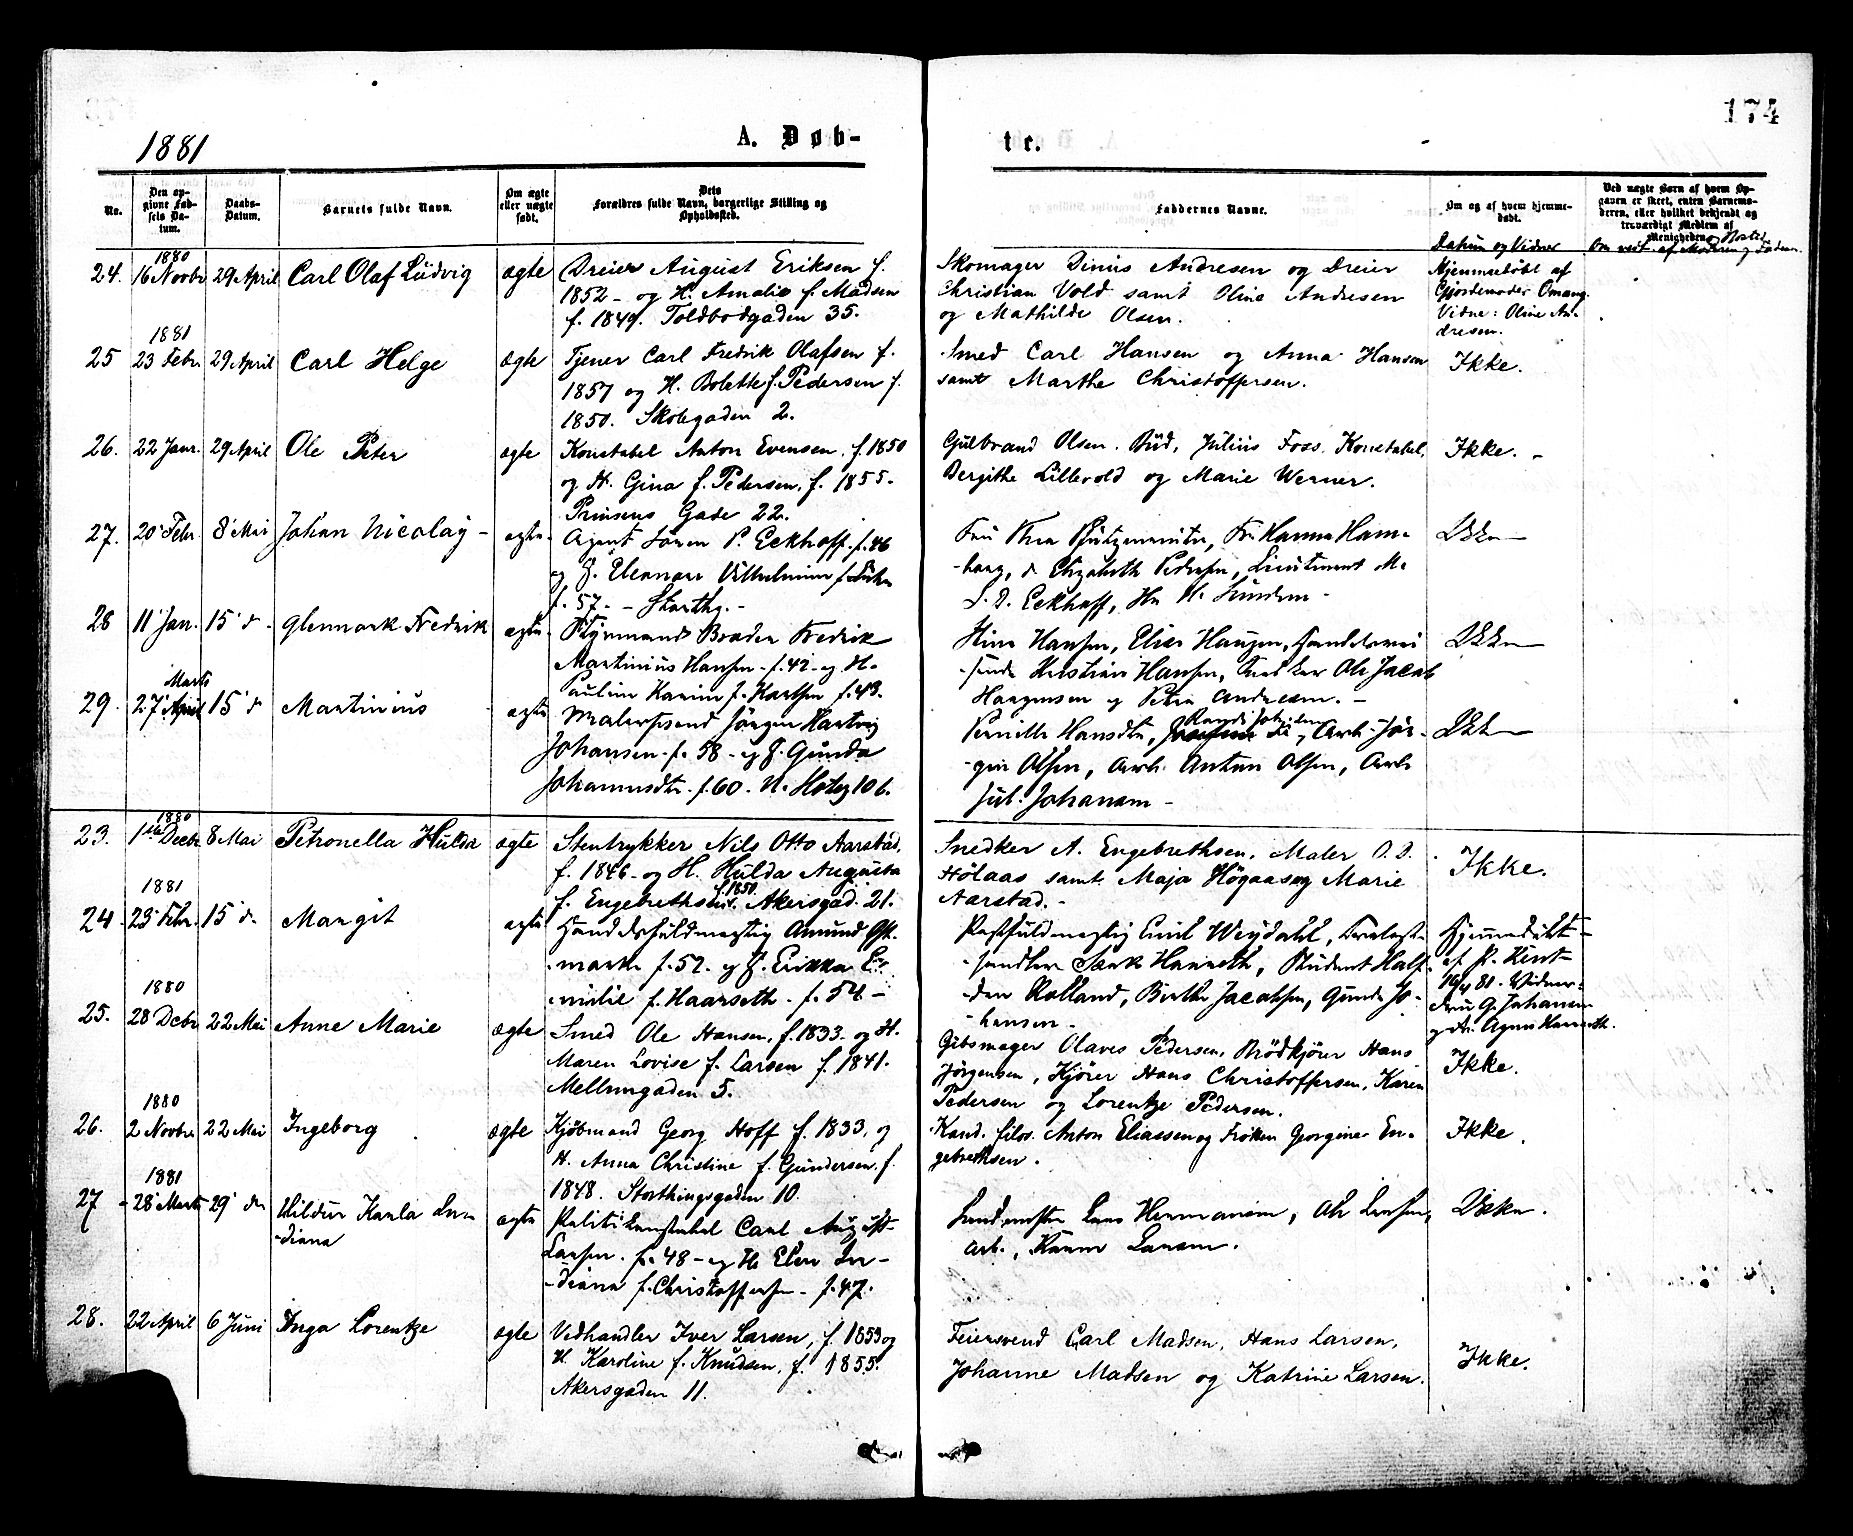 174
1881
A. Døb-
te.
No.
Den op-
givne Fød-
sels Da-
tum.
Daabs-
Datum.
Barnets fulde Navn.
Om ægte
eller uægte
født.
Dets
Forældres fulde Navn, borgerlige Stilling og
Opholdssted.
Faddernes Navne.
Om og af hvem hjemme-
døbt.
Datum og Vidner
Ved uægte Børn af hvem Op-
gaven er skeet, enten Barnemo-
deren, eller hvilket bekjendt og
troværdigt Medlem af
Menigheden.
24. 1880 16 Novbr 29 April Carl Olaf Ludvig ægte Dreier August Eriksen f.
1852 - og H. Amalie f. Madsen
f. 1849. Toldbodgaden 35.
Skomager Dinus Andresen og Dreier
Christian Vold samt Oline Andresen
og Mathilde Olsen.
Hjemmedøbt af
Gjordemoder Omang.
Vidne: Oline An-
dresen.
25 1881 23 Febr. 29 April Carl Helge ægte Tjener Carl Fredrik Olafsen f.
1857 og H. Bolette f. Pedersen f.
1850. Skolegaden 2.
Smed Carl Hansen og Anna Hansen
samt Marthe Christoffersen.
Ikke.
26. 22 Janr. 29 April Ole Peter ægte Konstabel Anton Evensen, f. 1850
og H. Gina f. Pedersen, f. 1855.
Prinsens Gade 22.
Gulbrand Olsen. Bud, Julius Foss. Konstabel,
Bergithe Lillevold og Marie Werner.
Ikke. -
27. 20 Febr. 8 Mai Johan Nicolay - ægte Agent Søren P. Eckhoff. f. 46
og H. Elenore Vilhelmine f.
f. 57. - Storthg. -
Elizabeth Pedersen, Lieutenant M.
S. D. Eckhoff, Hr. H. Sundem -
Ikke
28 11 Jan. 15 d. Glenmark Fredrik ægte Fredrik
Martinius Hansen - f. 42 - og H.
Pauline Karine f. Karlsen f. 43.
Stine Hansen, Elise Haugen, Handelsrei-
sende Kristian Hansen, Snedker Ole Jacob
Haagensen og Petra Andresen. -
Ikke
29. 27 Marts 15 d Martinius ægte Malersvend Jørgen Hartvig
Johansen. f. 58 - og H. Gunda
Johannesdtr. f. 60. N. Slotsg 10 b.
Pernille Hansdtr, Randi Johnsen, Arb. Jør-
gen Olsen, Arb. Anton Olsen, Arb.
Jul. Johansen -
Ikke
23. 1880 1ste Decbr 8 Mai Petronella Hulda ægte Stentrykker Nils Otto Aarstad,
f. 1846 - og H. Hulda Augusta
f. Engebrethsen. f. 1850. Akersgad. 21.
Snedker A. Engebrethsen. Maler O. O.
Hølaas samt. Maja Högaas og Marie
Aarstad. -
Ikke.
24 1881 23 Febr. 15 d. Margit ægte Handelsfuldmægtig Amund Øst-
mark f. 52. og H. Erikka E-
milie f. Haarseth. - f. 54 -
Postfuldmægtig Emil Weydahl,
Hanneth, Student Half-
dan Rolland, Birthe Jacobsen, Gunda Jo-
hansen -
Hjemmedøbt
af P. Kent
19/4 81. Vidner:
Fru G. Johansen
og Fr. Agnes Hanneth.
25. 1880 28 Decbr 22 Mai Anne Marie ægte Smed Ole Hansen, f. 1833. og H.
Maren Lovise f. Larsen f. 1841.
Mellemgaden 5.
Gibsmager Olaves Pedersen, Brödkjører Hans
Jørgensen, Kjører Hans Christoffersen, Karen
Pedersen og Lorentze Pedersen.
Ikke.
26. 1880 2 Novbr 22 Mai Ingeborg ægte Kjöbmand Georg Hoff f. 1833, og
H. Anna Christine f. Gundersen. f.
1848. Storthingsgaden 10.
Kand. filos. Anton Eliassen og Frøken Georgine En-
gebrethsen.
Ikke.
27 1881 - 28 Marts 29 d. Hildur Karla In-
-diana ægte Politikonstabel Carl August
Larsen. f. 48 - og H. Elen In-
-diana f. Christoffersen - f. 47.
Lars Hermansen, Ole Larsen,
Arb., Karen Larsen.
Ikke.
28. 22 April 6 Juni Inga Lorentze ægte Vedhandler Iver Larsen, f. 1853 og
H. Karoline f. Knudsen, f. 1855.
Akersgaden 11.
Feiersvend Carl Madsen, Hans Larsen,
Johanne Madsen og Katrine Larsen.
Ikke.